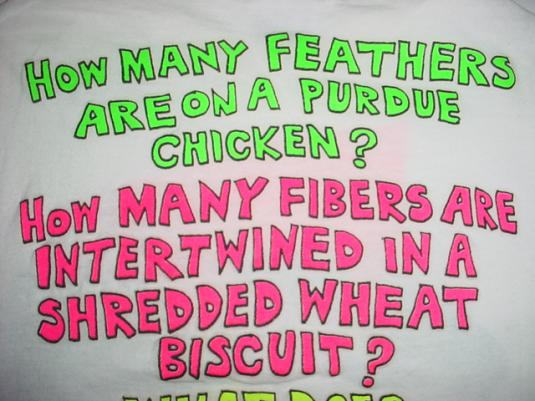 HOW MANY FEATHERS
ARE ON A PURDUE
CHICKEN?
HOW MANY FIBERS ARE
INTERTWINED IN A
SHREDDED WHEAT
BISCUIT?
WHAT DOES